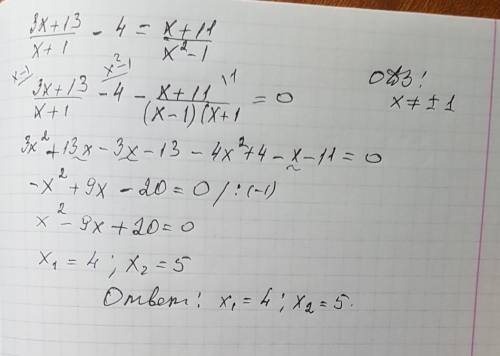 (3x+13)/(x+1) - 4 = (x+11)/(x²-1)
x-1) x²-1) \1
(3x+13)/(x+1) - 4 - (x+11)/((x-1)(x+1) = 0
ОДЗ!
x ≠ ±1
3x² + 13x - 3x - 13 - 4x² + 4 - x - 11 = 0
-x² + 9x - 20 = 0 /:(-1)
x² - 9x + 20 = 0
x₁ = 4 ; x₂ = 5
Ответ: x₁ = 4 ; x₂ = 5.